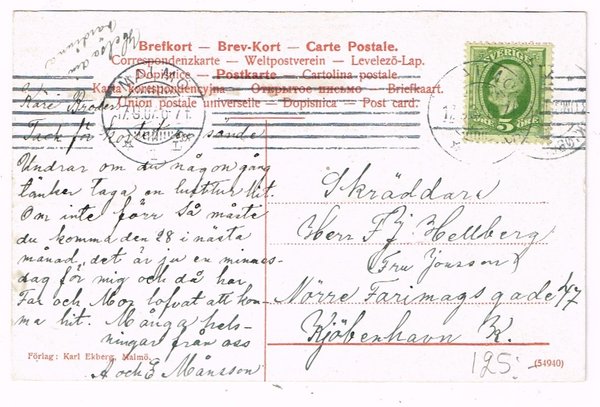 Helsa din
Brefkort — Brev-Kort — Carte Postale.
Correspondenzkarte — Weltpostverein — Levelező-Lap.
Dopisnice — Postkarte — Cartolina postale.
Karta korespondencyjna — Открытое письмо — Briefkaart.
Union postale universelle — Dopisnica — Post card.
SVERIGE
5
ÖRE
MALMÖ
Käre Broder
Tack för
sände
Undrar om du någon gång
tänker taga en lusttur hit.
Om inte förr så måste
du komma den 28 i nästa
månad, det är ju en minnes-
dag för mig och då har
Far och Mor lofvat att kom-
ma hit. Många hels-
ningar från oss
A och E Månsson
Skräddare
Herr F J Hellberg
Fru Jönsson
Nörre Farimagsgade 47
Kjöbenhavn K.
Förlag: Karl Ekberg, Malmö.
125:-
(54940)